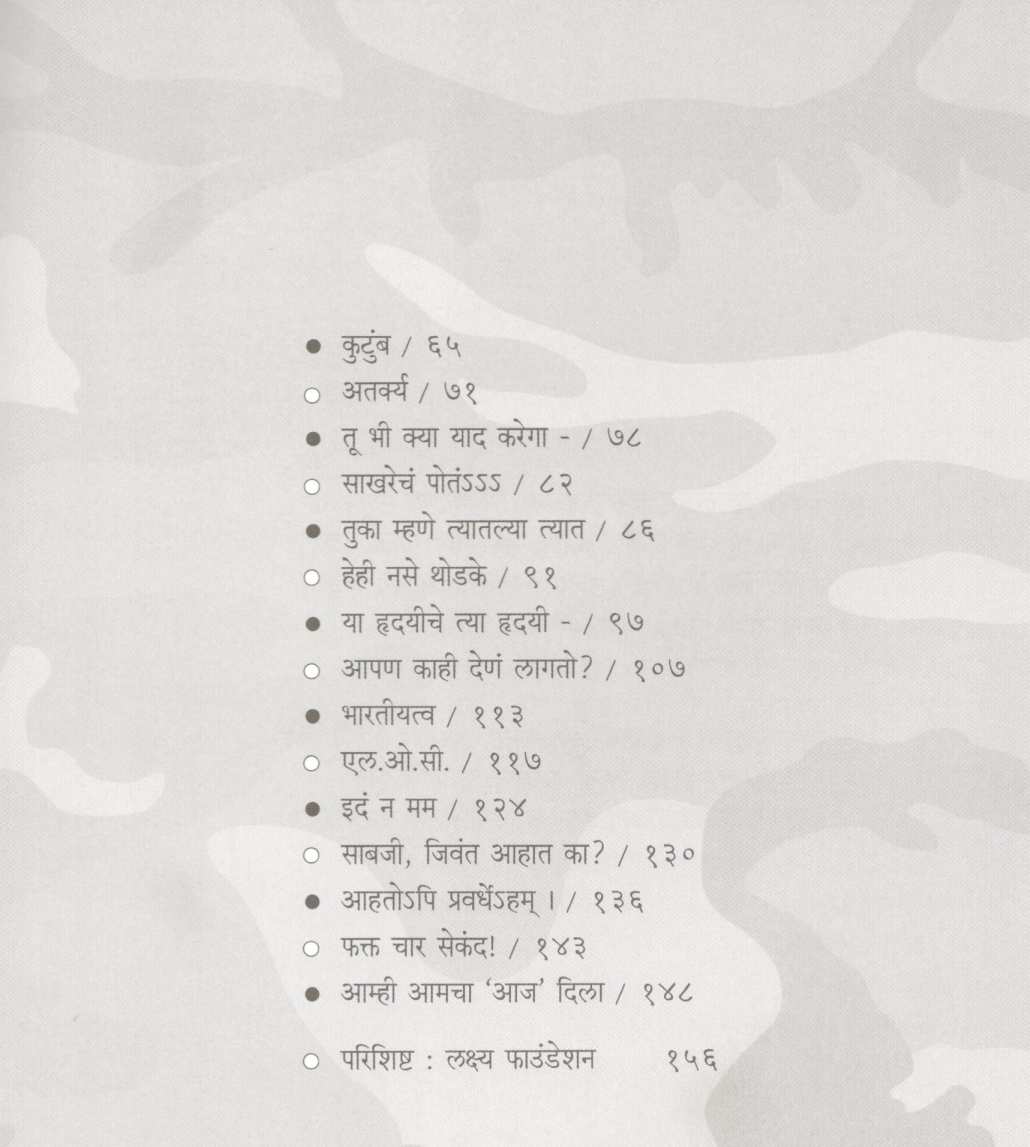 ● कुटुंब / ६५
○ अतर्क्य / ७१
● तू भी क्या याद करेगा - / ७८
○ साखरेचं पोतंऽऽऽ / ८२
● तुका म्हणे त्यातल्या त्यात / ८६
○ हेही नसे थोडके / ९१
● या हृदयीचे त्या हृदयी - / ९७
○ आपण काही देणं लागतो? / १०७
● भारतीयत्व / ११३
○ एल.ओ.सी. / ११७
● इदं न मम / १२४
○ साबजी, जिवंत आहात का? / १३०
● आहतोऽपि प्रवर्धेऽहम् । / १३६
○ फक्त चार सेकंद! / १४३
● आम्ही आमचा ‘आज’ दिला / १४८
○ परिशिष्ट : लक्ष्य फाउंडेशन १५६